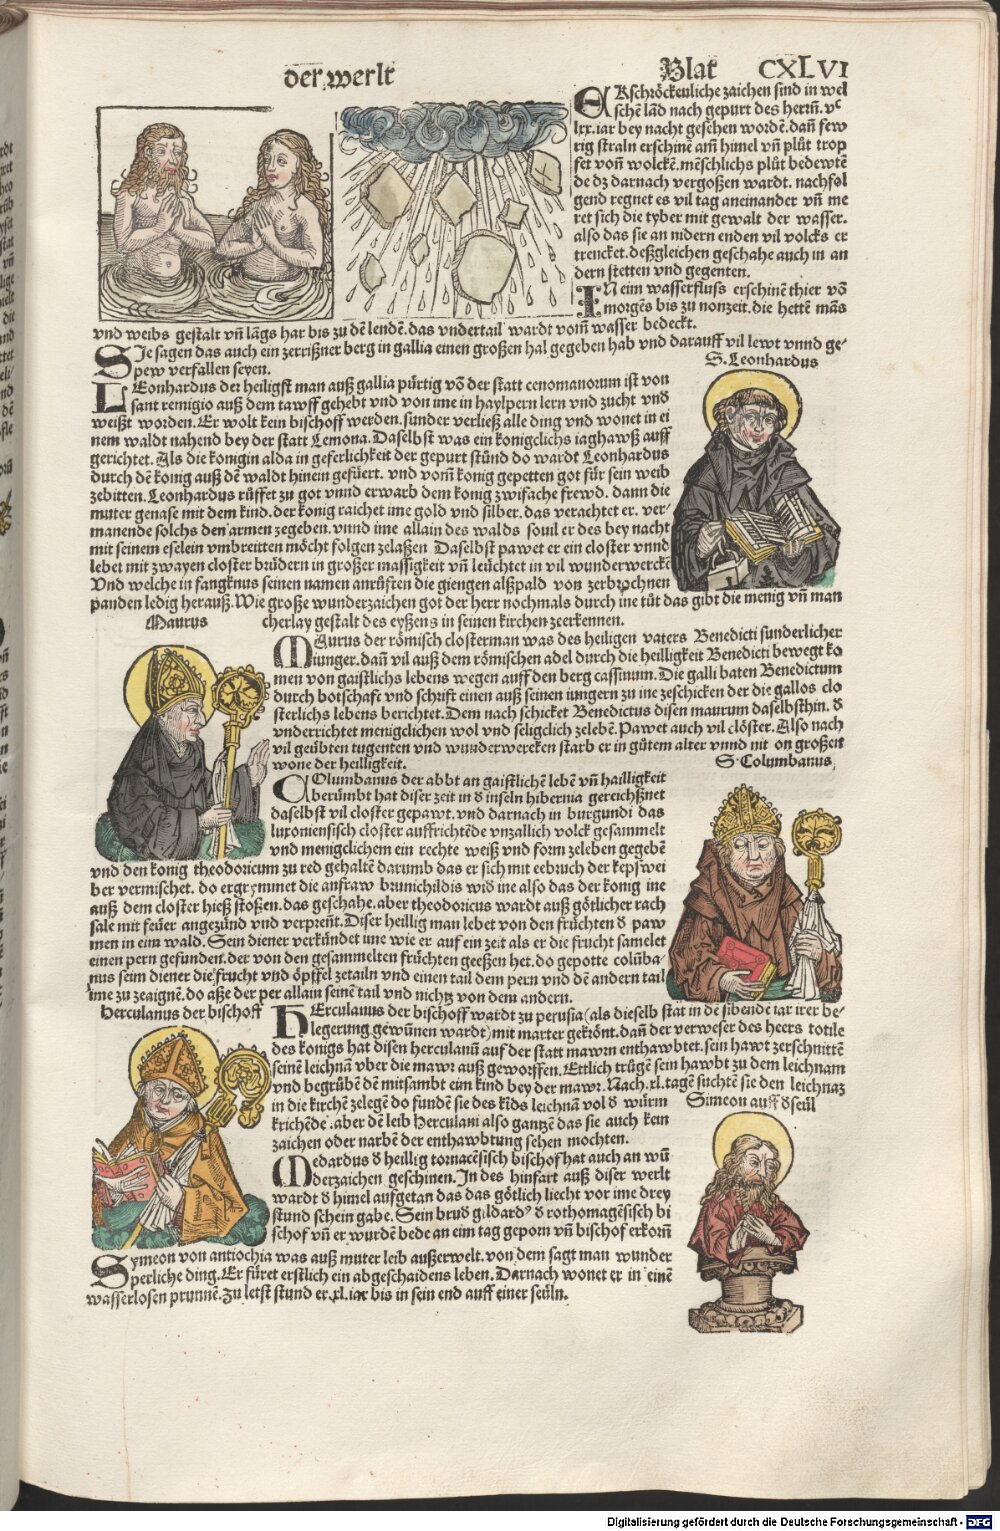 der werlt
Blat CXLVI
ERschröckenliche zaichen sind in wel
schẽ lãd nach gepurt des herrñ. vᶜ
lxx. iar bey nacht gesehen wordẽ. dañ few
rig straln erschinẽ am̃ himel vñ plůt trop
fet von̄ wolckẽ. mẽschlichs plůt bedewtẽ
de dz darnach vergoßen wardt. nachfol
gend regnet es vil tag aneinander vñ me
ret sich die tyber mit gewalt der wasser.
also das sie an nidern enden vil volcks er
trencket. deßgleichen geschahe auch in an
dern stetten vnd gegenten.
IN eim wasserfluss erschinẽ thier võ
morgẽs bis zu nonzeit. die hettẽ mãs
vnd weibs gestalt vñ lãgs har bis zu dẽ lendẽ. das vndertail wardt vom̃ wasser bedeckt.
SIe sagen das auch ein zerrißner berg in gallia einen großen hal gegeben hab vnd darauff vil lewt vnnd ge-
pew verfallen seyen.
S. Leonhardus
LEonhardus der heiligst man auß gallia pürtig võ der statt cenomanorum ist von
sant remigio auß dem tawff gehebt vnd von ime in haylpern lern vnd zucht vnd
weißt worden. Er wolt kein bischoff werden. sunder verließ alle ding vnd wonet in ei
nem waldt nahend bey der statt Lemona. Daselbst was ein konigclichs iaghawß auff
gerichtet. Als die konigin alda in geferlichkeit der gepurt stůnd do wardt Leonhardus
durch dẽ konig auß dẽ waldt hinein gefüert. vnd vom̃ konig gepetten got für sein weib
zebitten. Leonhardus rüffet zu got vnnd erwarb dem konig zwifache frewd. dann die
muter genase mit dem kind. der konig raichet ime gold vnd silber. das verachtet er. ver-
manende solchs den armen zegeben. vnnd ime allain des walds souil er des bey nacht
mit seinem eselein vmbreitten möcht folgen zelaßen Daselbst pawet er ein closter vnnd
lebet mit zwayen closter brüdern in großer massigkeit vñ leüchtet in vil wunderwerckẽ
Vnd welche in fangknus seinen namen anrüften die giengen alßpald von zerbrochnen
panden ledig herauß. Wie große wunderzaichen got der herr nochmals durch ine tůt das gibt die menig vñ man
cherlay gestalt des eyßens in seinen kirchen zeerkennen.
Maurus
MAurus der römisch closterman was des heiligen vaters Benedicti sunderlicher
iunger. dañ vil auß dem römischen adel durch die heilligkeit Benedicti bewegt ko
men von gaistlichs lebens wegen auff den berg cassinum. Die galli baten Benedictum
durch botschafft vnd schrift einen auß seinen iungern zu ine zeschicken der die gallos clo
sterlichs lebens berichtet. Dem nach schicket Benedictus disen maurum daselbsthin. d̕
vnderrichtet menigclichen wol vnd seligclich zelebẽ. Pawet auch vil clöster. Also nach
vil geübten tugenten vnd wunderwercken starb er in gůtem alter vnnd nit on großen
wone der heilligkeit.
S. Columbanus
COlumbanus der abbt an gaistlichẽ lebẽ vñ hailligkeit
berümbt hat diser zeit in d̕ inseln hibernia gereichßnet
daselbst vil closter gepawt. vnd darnach in burgundi das
luxoniensisch closter auffrichtẽde vnzallich volck gesammelt
vnd menigclichem ein rechte weiß vnd form zeleben gegebẽ
vnd den konig theodoricum zu red gehaltẽ darumb das er sich mit eebruch der kepswei
ber vermischet. do ergrymmet die anfraw brunichildis wid̕ ine also das der konig ine
auß dem closter hieß stoßen. das geschahe. aber theodoricus wardt auß götlicher rach
sale mit feüer angezünd vnd verpreñt. Diser heillig man lebet von den früchten d̕ paw
men in eim wald. Sein diener verkündet ime wie er auf ein zeit als er die frucht samelet
einen pern gefunden. der von den gesammelten früchten geeßen het. do gepotte colũba-
nus seim diener die frucht vnd öpffel zetailn vnd einen tail dem pern vnd dẽ andern tail
ime zu zeaignẽ. do aße der per allain seinẽ tail vnd nichtz von dem andern.
Herculanus der bischoff
HErculanus der bischoff wardt zu perusia (als dieselb stat in dẽ sibendẽ iar irer be-
legerung gewũnen wardt) mit marter gekrönt. dañ der verweser des heers totile
des konigs hat disen herculanũ auf der statt mawrn enthawbtet. sein hawt zerschnittẽ
seinẽ leichnã vber die mawr auß geworffen. Ettlich trůgẽ sein hawbt zu dem leichnam
vnd begrůbẽ dẽ mitsambt eim kind bey der mawr. Nach .xl. tagẽ suchtẽ sie den leichnaz
in die kirchẽ zelegẽ do fundẽ sie des kĩds leichnã vol d̕ würm
krichẽde. aber dẽ leib Herculani also gantzẽ das sie auch kein
zaichen oder narbẽ der enthawbtung sehen mochten.
Simeon auff d̕ seül
MEdardus d̕ heillig tornacẽsisch bischof hat auch an wũ
derzaichen geschinen. In des hinfart auß diser werlt
wardt d̕ himel aufgetan das das götlich liecht vor ime drey
stund schein gabe. Sein brud̕ gildardꝰ d̕ rothomagẽsisch bi
schof vñ er wurdẽ bede an eim tag geporn vñ bischof erkorñ
SYmeon von antiochia was auß muter leib außerwelt. von dem sagt man wunder
sperliche ding. Er füret erstlich ein abgeschaidens leben. Darnach wonet er in einẽ
wasserlosen prunnẽ. Zu letst stund er .xl. iar bis in sein end auff einer seüln.
Digitalisierung gefördert durch die Deutsche Forschungsgemeinschaft - DFG